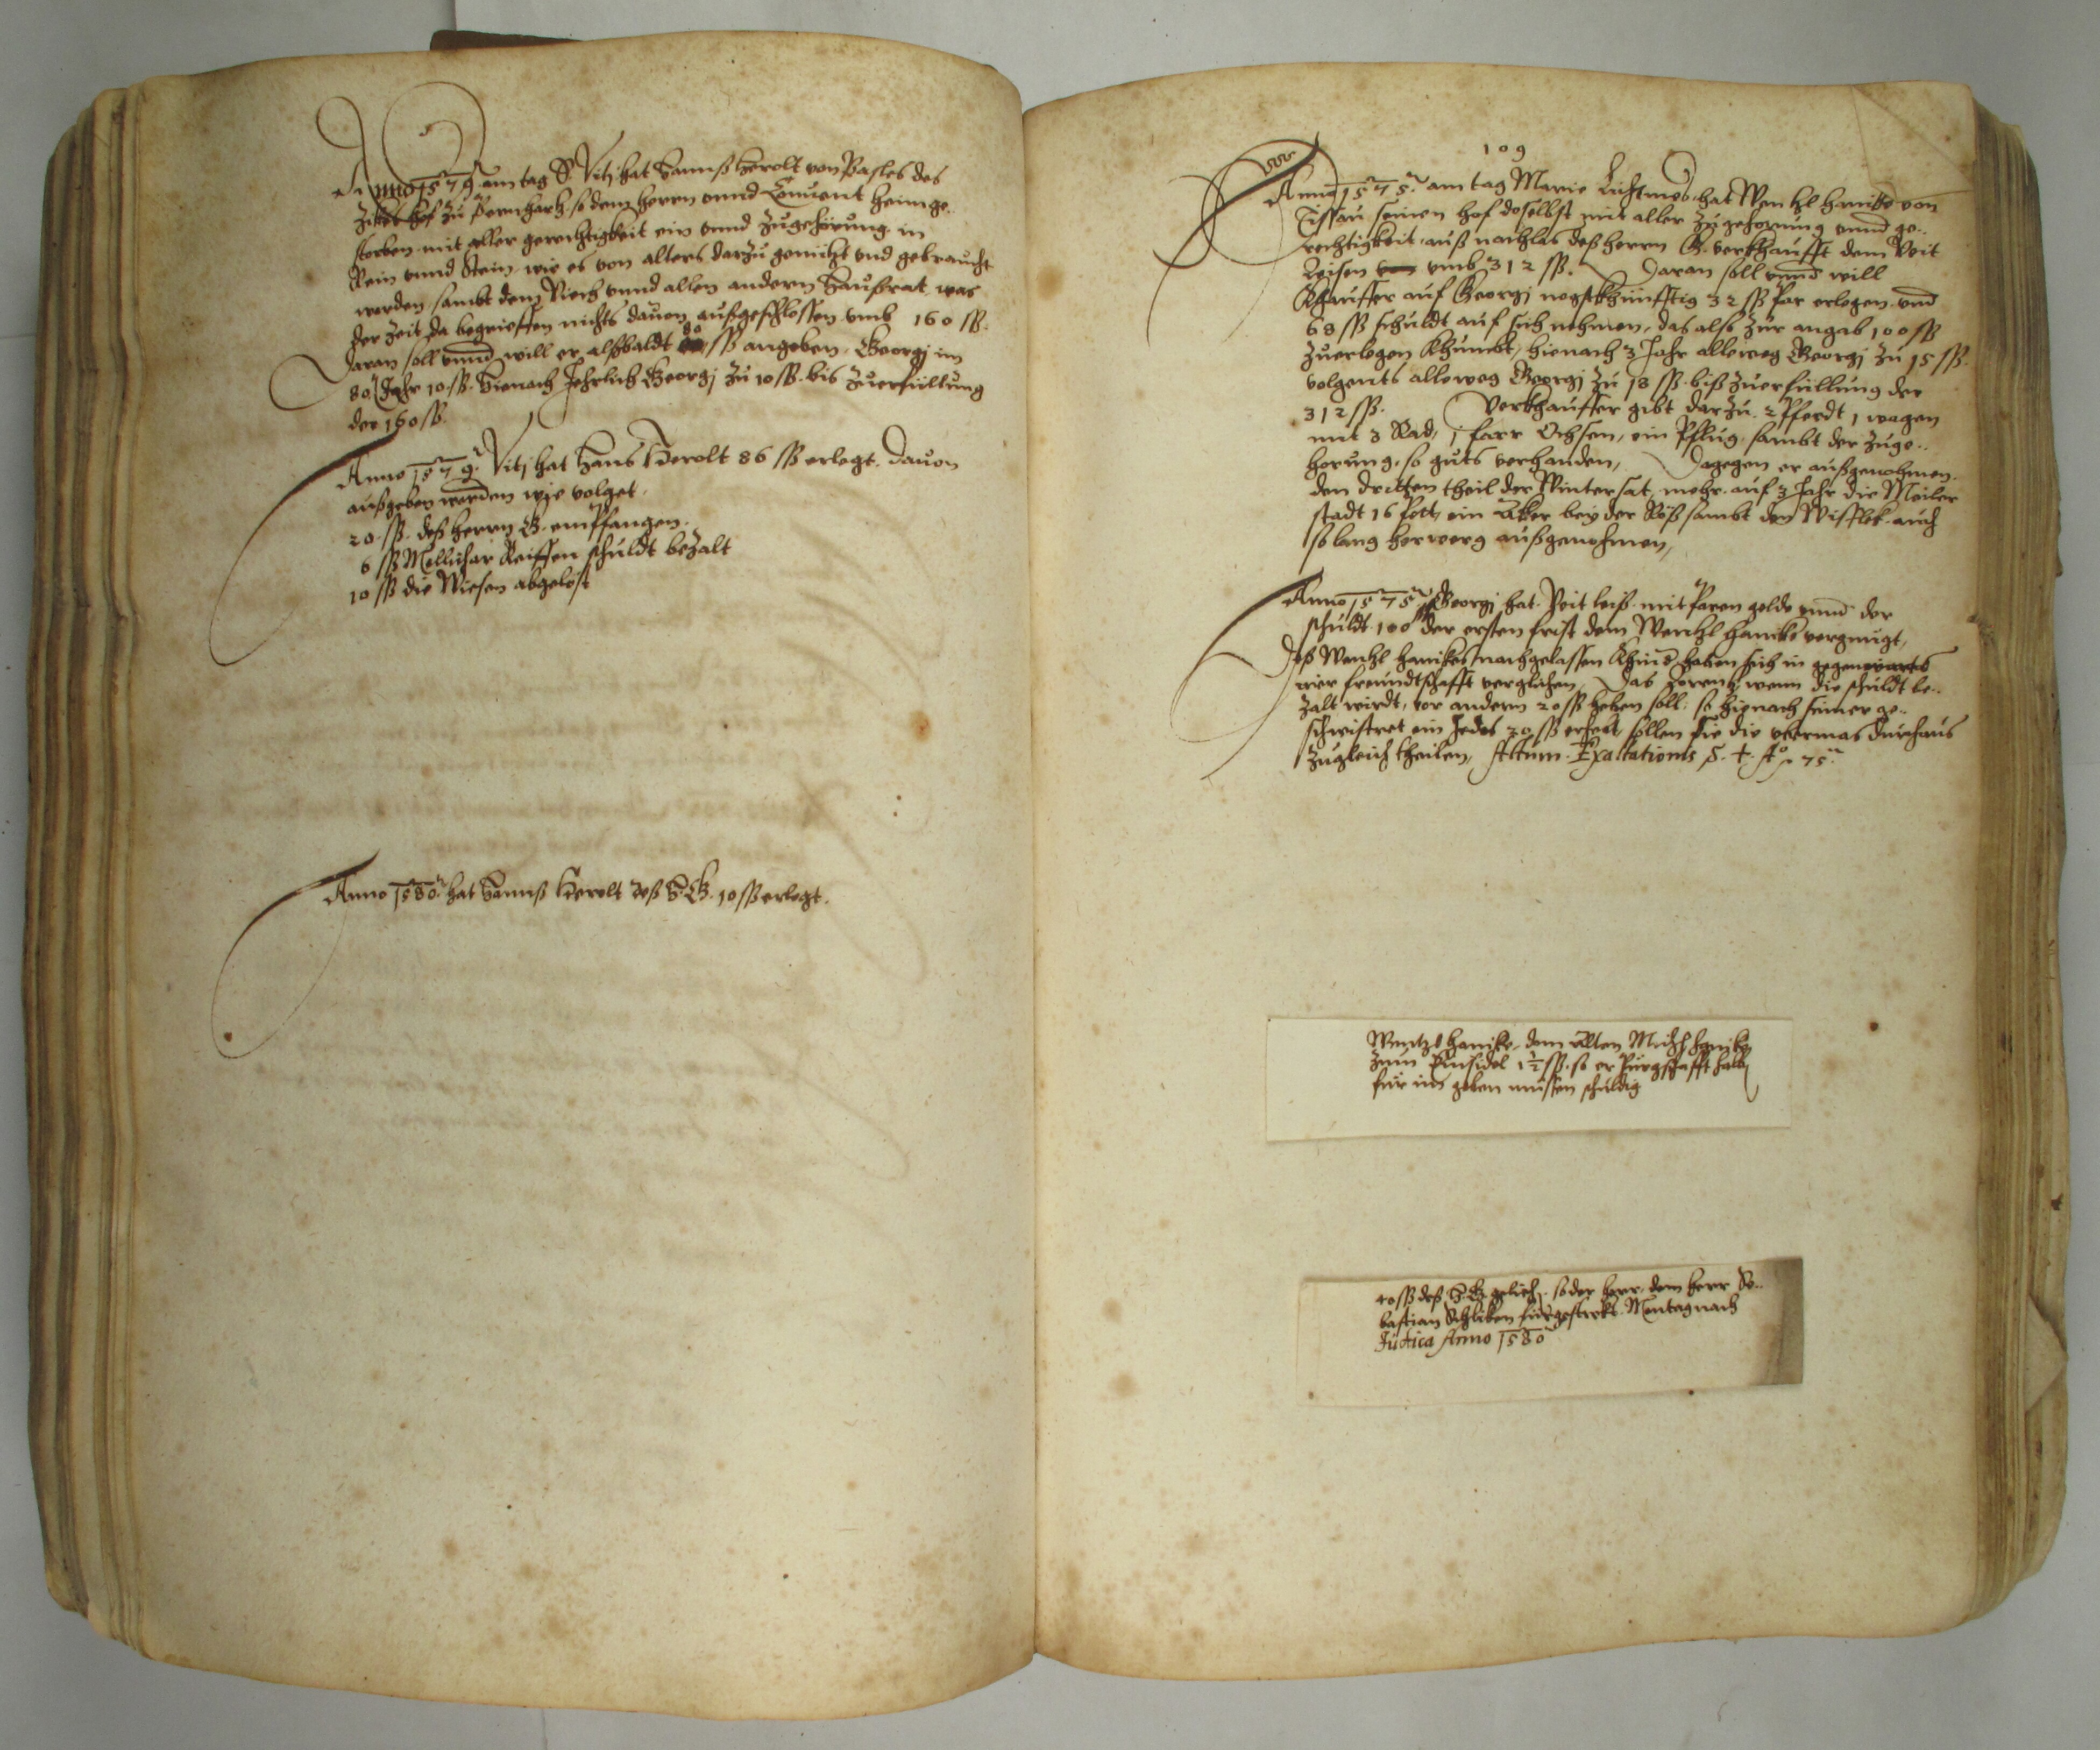 Anno 1579 am tag S. Vitj hat Hannß Herolt von Pasles des
hof zu Bernharh so dem herrn vnnd Conuent heimge..
storben mit aller gerechtigkeit ein vnnd Zugehörung in
Rein vnnd Stein, wie es von alters darzu genützt vnd gebraucht
worden, sambt dem Viech vnnd allen andern Haußrat, was
der Zeit da begrieffen nichts dauon außgeschlossen vmb 160 ßß.
Daran soll vnnd will er alßbaldt 80 ßß angeben. Georgj im
80. Jahr 10 ßß. Hienach Jehrlich Georgj zu 10 ßß. bis Zuerfüllung
der 160 ßß.
Anno 1579. Vitj hat Hans Herolt 86 ßß erlegt. Dauon
außgeben worden wie volget.
20 ßß. deß herrn G. empfangen.
6 ßß Melichar Reissen schuldt bezalt
10 ßß die Wiesen abgelöst
Anno 1580. hat Hannß Herolt deß H. G. 10 ßß erlegt.
109
Anno 1575. am tag Marie Lichtmes, hat Wenchl Hanike von
Tissau seinen hof doselbst mit aller Zugehorung vnnd ge..
rechtigkeit, auß nachlas deß herrn G. verkhaufft dem Veit
Leisen vmb 312 ßß. Daran soll vnnd will
Khauffer auf Georgj negstkhünfftig 32 ßß Par erlegen. vnd
68 ßß schuldt auf sich nehmen, das also zur angab 100 ßß
Zuerlegen Khumbt, hienach 3 Jahr alleweg Georgj zu 15 ßß.
volgents alleweg Georgj zu 18 ßß. biß Zuerfüllung der
312 ßß. Verkhauffer gibt darzu 2 Pferdt 1 wagen
mit 3 Rad, 1 farr Ochsen, ein Pflug, sambt der Zuge..
horung, so guts vorhanden, Dagegen er außgenohmen.
den dritten theil der Wintersat, mehr auf 3 Jahr die Meiler
stadt 16 fott, ein Aker bey der Röß sambt den Wisflek auch
so lang herwerg außgenohmen,
Anno 1575. Georgj hat Veit leiß mit Paren gelde vnnd der
schuldt 100 ßß der ersten frist dem Wenchl Hanike vergnügt,
Deß Wenchl Hanikes nachgelassen Khind haben sich in gegenwarts
irer freundtschafft verglichen, Das Lorentz wenn die schuldt be..
zalt wirdt, vor andern 20 ßß heben soll: so hienach seiner ge..
schwistret ein Jedes 20 ßß erhebt, sollen sie die veermas durchaus
Zugleich theilen, Actum. Exaltationis S. +. Aº 75.
Wentzl Hanike, dem Alten Mich Hanike
Zum Einsidel 1½ ßß. so er Pürgschafft halb
für in geben müssen schuldig
40 ßß deß H. G. gelich. so der herr dem herr Se..
bastian Schliken fürgestrekt. Montag nach
Judica Anno 1580